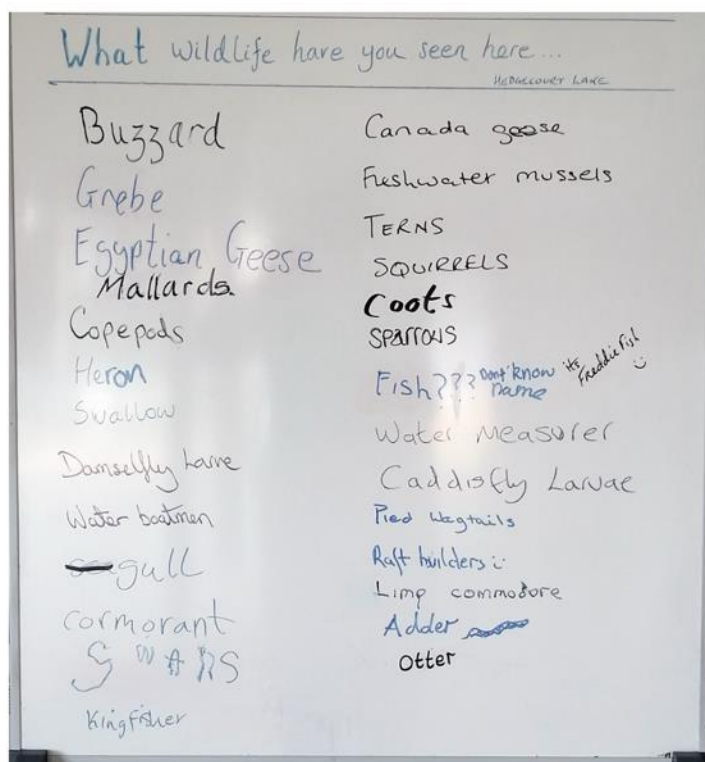 What wildlife have you seen here...
HEDGECOURT LAKE
Buzzard
Grebe
Egyptian Geese
Mallards.
Copepods
Heron
Swallow
Damselfly Larve
Water boatmen
gull
cormorant
SWANS
Kingfisher
Canada geese
Freshwater mussels
TERNS
SQUIRRELS
Coots
SPARROWS
Fish??? Dont know name its Freddie Fish
Water Measurer
Caddisfly Larvae
Pied Wagtails
Raft builders :)
Limp commodore
Adder
Otter